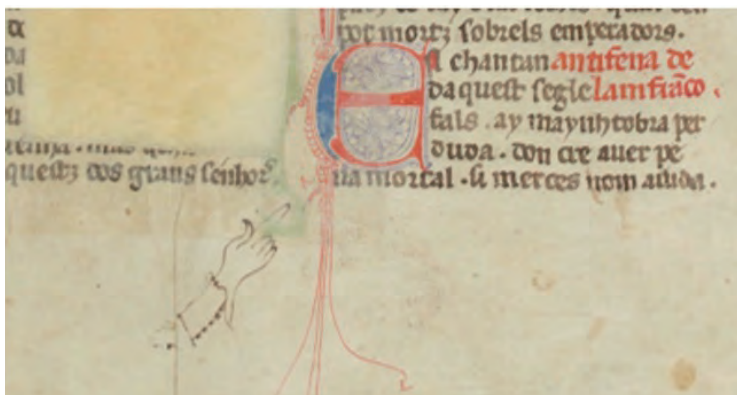 questz dos grans senhors.
pot mortz sobrels emperadors.
En chantan antifena de
daquest segle lamfrãco .
fals . ay mayuh tobra per
duda . don cre auer pe
na mortal . si merces nom aiuda .